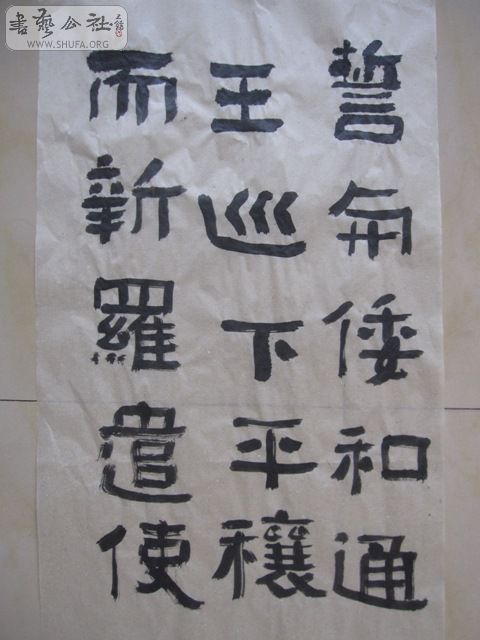 誓与倭和通
王巡下平穰
而新羅遣使
書藝公社
WWW.SHUFA.ORG